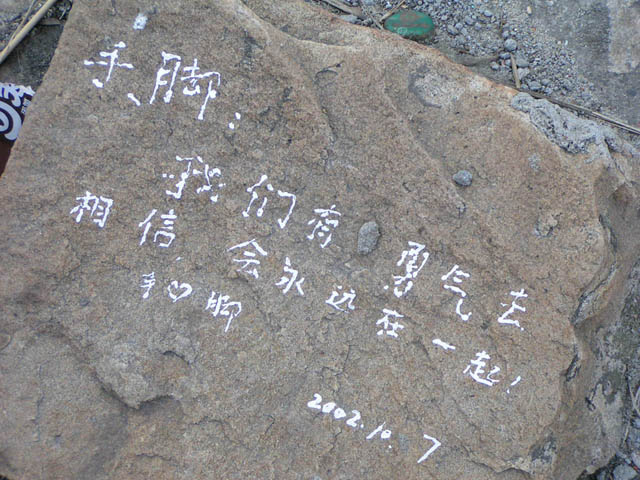 手、脚：
我们有勇气去
相信，会永远在一起！
脚
2002.10.7